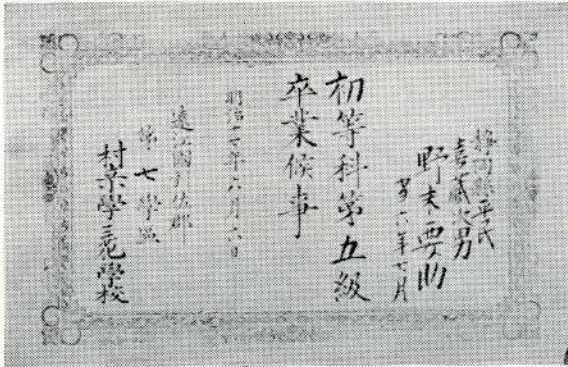 静岡縣平民
喜藏次男
野末要助
第六年七月
初等科第五級
卒業候事
明治十七年六月六日
遠江國方佐郡
第七學區
村奈學三苑學校